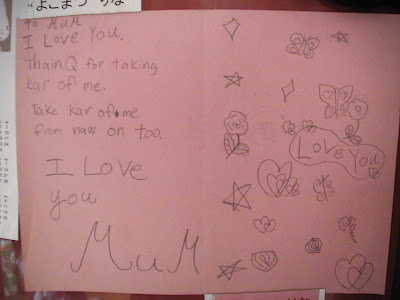 よこまつりな
To MuM
I Love You.
ThainQ for taking
kar of me.
Take kar of me
from naw on too.
I Love
you
MuM
Love You